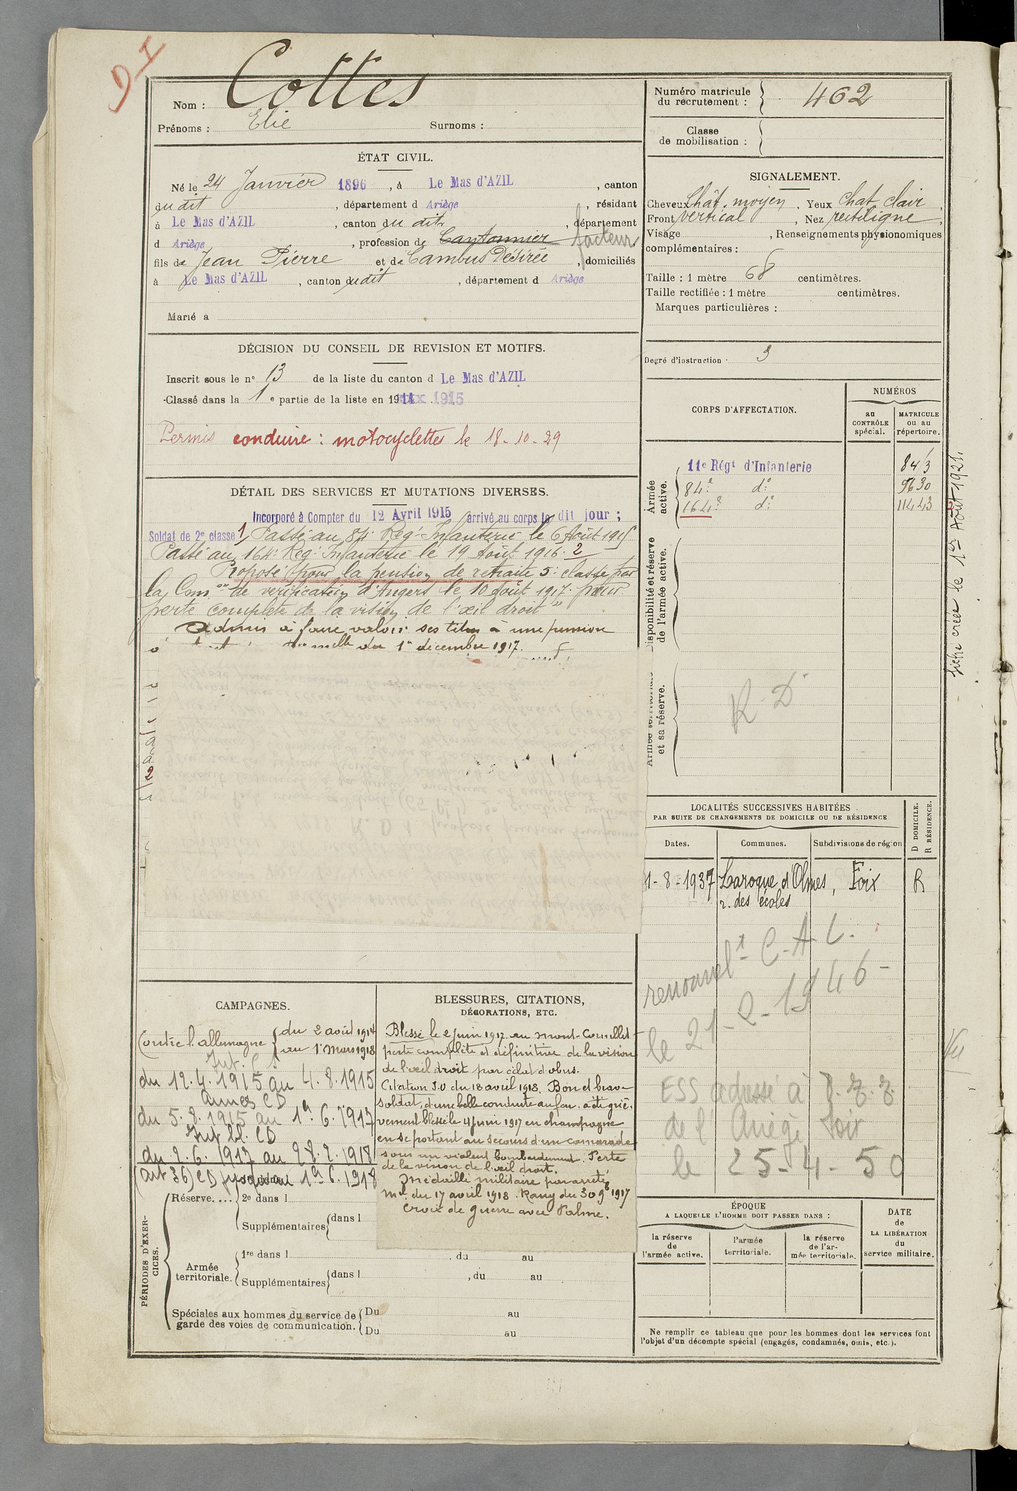 Nom : Cottes
Prénoms : Elie Surnoms :
ÉTAT CIVIL.
Né le 24 Janvier 1896, à Le Mas d'AZIL, canton
du dit, département d Ariège, résidant
à Le Mas d'AZIL, canton du dit, département
d Ariège, profession de Cantonnier facteur
fils de Jean Pierre et de Cambus Désirée, domiciliés
à Le Mas d'AZIL, canton dudit, département d Ariège
Marié à
DÉCISION DU CONSEIL DE REVISION ET MOTIFS.
Inscrit sous le n° 13 de la liste du canton d Le Mas d'AZIL
Classé dans la 1e partie de la liste en 1915
Permis conduire : motocyclettes le 18-10-29
DÉTAIL DES SERVICES ET MUTATIONS DIVERSES.
Incorporé à Compter du 12 Avril 1915 arrivé au corps le dit jour ;
Soldat de 2e classe 1 Passé au 84e Rég. Infanterie le 6 Août 1915
Passé au 164e Rég. Infanterie le 19 Août 1916. 2
Proposé pour la pension de retraite 5e classe par
la Comon de vérification d'Angers le 10 août 1917. pour
perte complète de la vision de l'œil droit"
Admis à faire valoir ses titres à une pension
1er décembre 1917.
CAMPAGNES.
Contre l'allemagne du 2 août 1914
au 1 Mars 1918
Int. CS
du 12.4.1915 au 4.8.1915
Armées CD
du 5.8.1915 au 1er.6.1917
Int bl. CD
du 2.6.1917 au 28.2.1918
(art 36) CD jusqu'au 1er 6.1918
BLESSURES, CITATIONS,
DÉCORATIONS, ETC.
Blessé le 2 juin 1917 au Mont-Cornillet
perte complète et définitive de la vision
de l'œil droit par éclat d'obus.
Citation J.O du 18 avril 1918. Bon et brave
soldat, d'une belle conduite au feu. a été griè-
vement blessé le 4 juin 1917 en champagne
en se portant au secours d'un camarade
sous un violent bombardement. Perte
de la vision de l'œil droit.
Médaille militaire par arrêté
mel du 17 avril 1918. Rang du 30 9bre 1917
Croix de guerre avec Palme.
PÉRIODES D'EXERCICES.
Réserve.... 2e dans l
Supplémentaires dans l
Armée territoriale. 1re dans l , du au
Supplémentaires dans l , du au
Spéciales aux hommes du service de Du au
garde des voies de communication. Du au
Numéro matricule
du recrutement : 462
Classe
de mobilisation :
SIGNALEMENT.
Cheveux Chât. moyen, Yeux Chat. clair,
Front vertical, Nez rectiligne,
Visage , Renseignements physionomiques
complémentaires :
Taille : 1 mètre 68 centimètres.
Taille rectifiée : 1 mètre centimètres.
Marques particulières :
Degré d'instruction : 3
CORPS D'AFFECTATION.
NUMÉROS
au
CONTRÔLE
spécial.
MATRICULE
ou au
répertoire.
Armée
active.
11e Régt d'Infanterie 843
84e do 9630
164e do 11443
Disponibilité et réserve
de l'armée active.
Armée territoriale
et sa réserve.
R. D
fiche créée le 1er Août 1921.
LOCALITÉS SUCCESSIVES HABITÉES
PAR SUITE DE CHANGEMENTS DE DOMICILE OU DE RÉSIDENCE
Dates. Communes. Subdivisions de région
D DOMICILE.
R RÉSIDENCE.
1-8-1937 Laroque d'Olmes, Foix R
r. des écoles
renouvelt C.A.L.
le 21-2-1946-
ESS adressé à
de l'Ariège Foix
le 25-4-50
ÉPOQUE
A LAQUELLE L'HOMME DOIT PASSER DANS :
la réserve
de
l'armée active.
l'armée
territoriale.
la réserve
de l'ar-
mée territoriale.
DATE
de
LA LIBÉRATION
du
service militaire.
Ne remplir ce tableau que pour les hommes dont les services font
l'objet d'un décompte spécial (engagés, condamnés, omis, etc.).